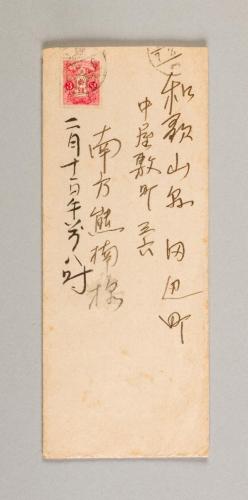 和歌山縣田辺町
中屋敷町三六
南方熊楠様
二月十二日午前八時